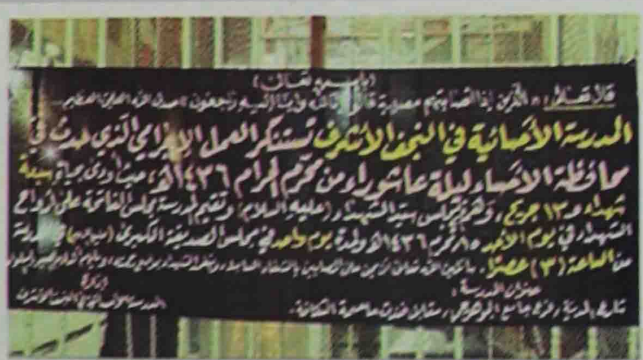 (باسمه تعالى)
قال تعالى: «الذين إذا أصابتهم مصيبة قالوا إنا لله وإنا إليه راجعون» صدق الله العلي العظيم
المدرسة الأحسائية في النجف الأشرف تستنكر العمل الإجرامي الذي حدث في
محافظة الأحساء ليلة عاشوراء من محرم الحرام ١٤٣٦هـ، حيث أودى بحياة سبعة
شهداء و١٣ جريح، وهم في مجلس سيد الشهداء (عليه السلام) وتقيم المدرسة مجلس الفاتحة على أرواح
الشهداء في يوم الأحد ١٥ محرم ١٤٣٦هـ ولمدة يوم واحد في مجلس الصديقة الكبرى
من الساعة (٣) عصرًا.
عنوان المدرسة:
شارع المدينة، فرع جامع الجوهرجي، مقابل
إدارة
المدرسة الأحسائية في النجف الأشرف